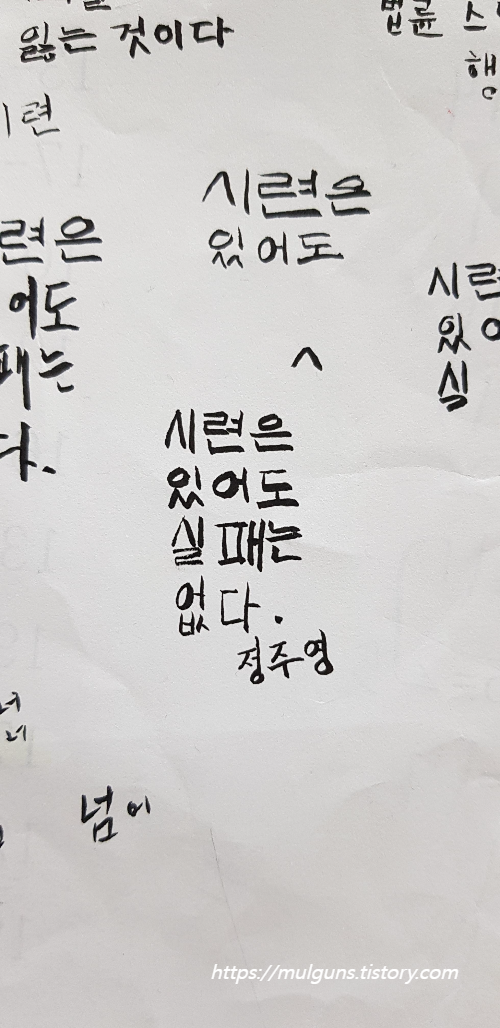 잃는 것이다
법륜 스
행
시련
시련은
있어도
련은
어도
패는
다.
시련
있어
실
시련은
있어도
실패는
없다.
정주영
넘어
https://mulguns.tistory.com